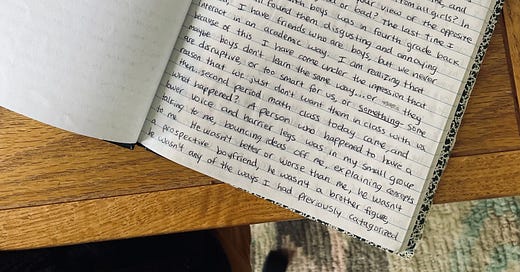 me, and
from all girls? In
your view of the opposite
or bad? The last time I
boys was in fourth grade back
found them disgusting and annoying.
I have friends who are boys, but we never
interact in an academic way. I am realizing that
because of this, I have come under the impression that
maybe boys don't learn the same way...or they
are disruptive, or too smart for us, or something, some
reason that we just don't want them in class with us
then...second period math class today came, and
what happened? A person who happened to have a
lower voice and harrier legs was in my small group
talking to me, bouncing ideas off me, explaining concepts
to me. He wasn't better or worse than me, he wasn't
a prospective boyfriend, he wasn't a brother figure,
he wasn't any of the ways I had previously catagorized